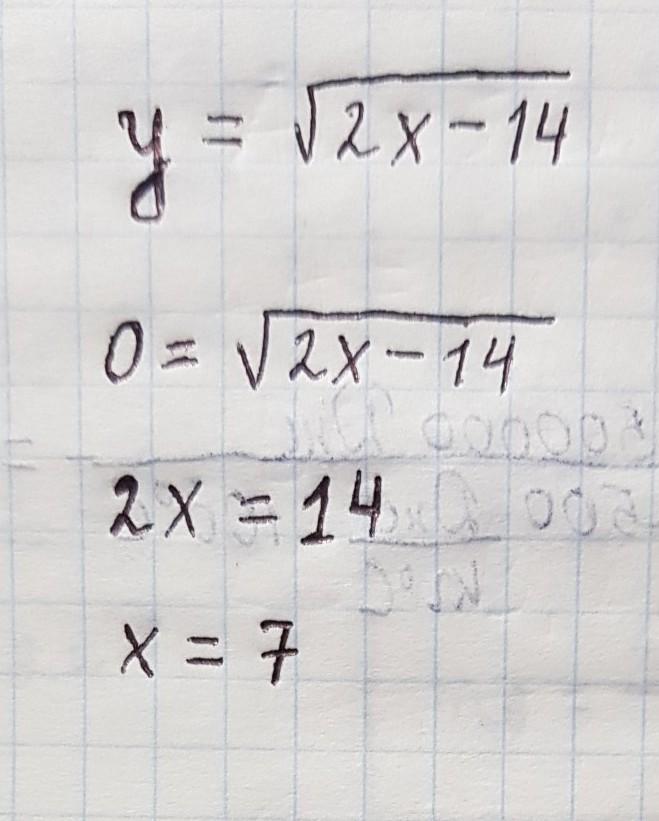 y = √2x - 14
0 = √2x - 14
2x = 14
x = 7